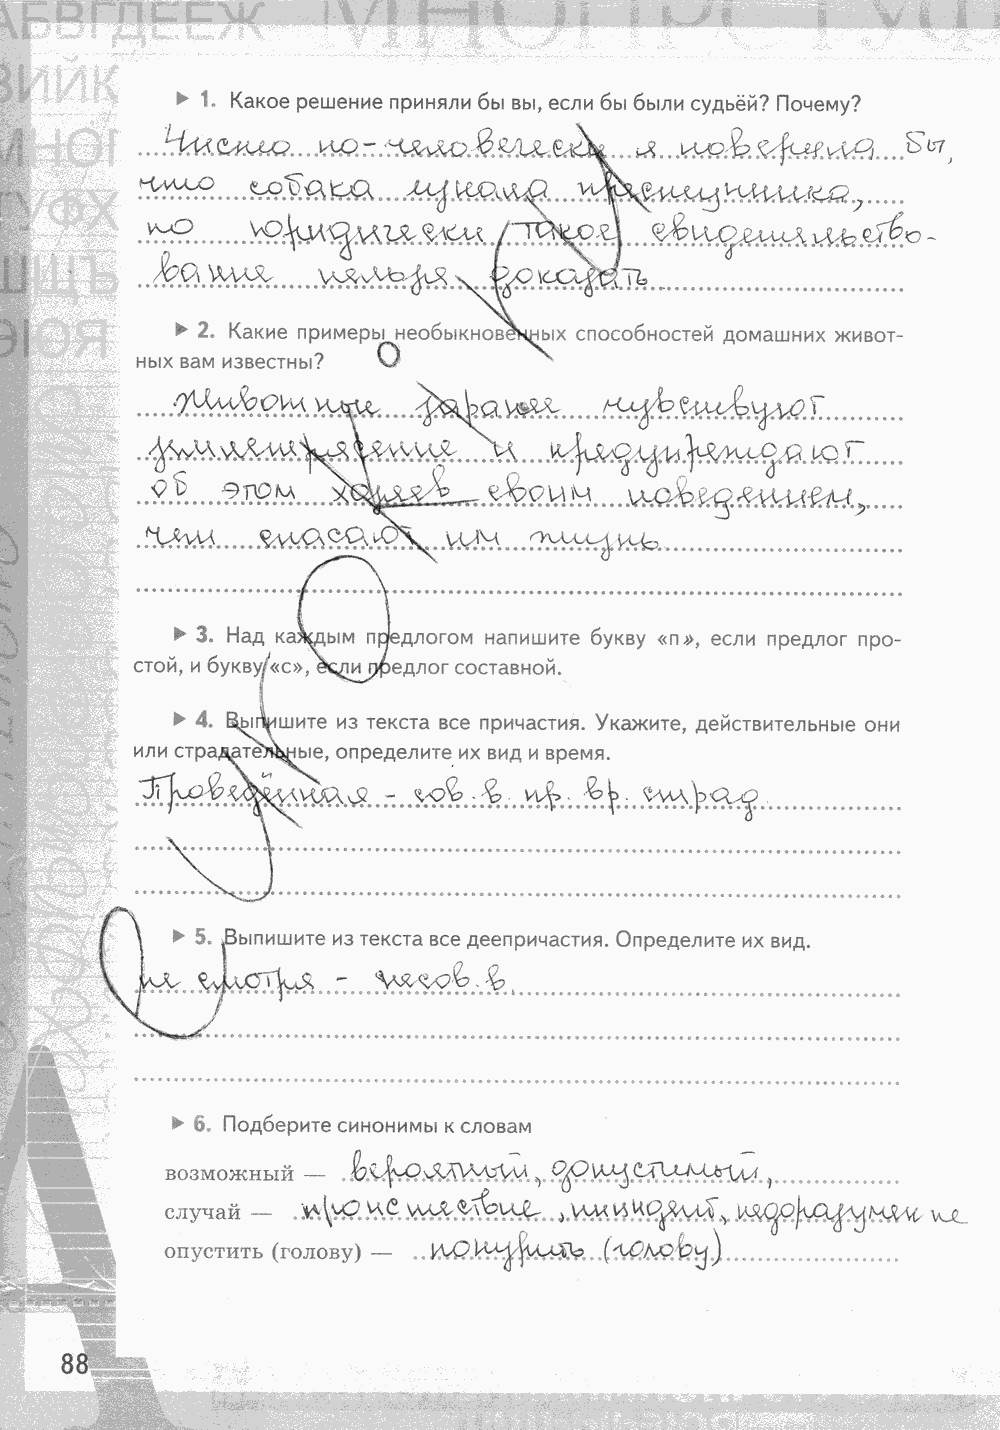 АБВГДЕЁЖ
МНОПРСТУФ
ЗИЙК
▶ 1. Какое решение приняли бы вы, если бы были судьёй? Почему?
Чисто по-человечески я поверила бы,
что собака узнала преступника,
но юридически такое свидетельство-
вание нельзя доказать.
▶ 2. Какие примеры необыкновенных способностей домашних живот-
ных вам известны?
Животные заранее чувствуют
землетрясение и предупреждают
об этом хозяев своим поведением,
чем спасают им жизнь.
▶ 3. Над каждым предлогом напишите букву «п», если предлог про-
стой, и букву «с», если предлог составной.
▶ 4. Выпишите из текста все причастия. Укажите, действительные они
или страдательные, определите их вид и время.
Проведённая - сов. в. пр. вр. страд.
▶ 5. Выпишите из текста все деепричастия. Определите их вид.
не смотря - несов. в.
▶ 6. Подберите синонимы к словам
возможный — вероятный, допустимый,
случай — происшествие, инцидент, недоразумение
опустить (голову) — понурить (голову)
88